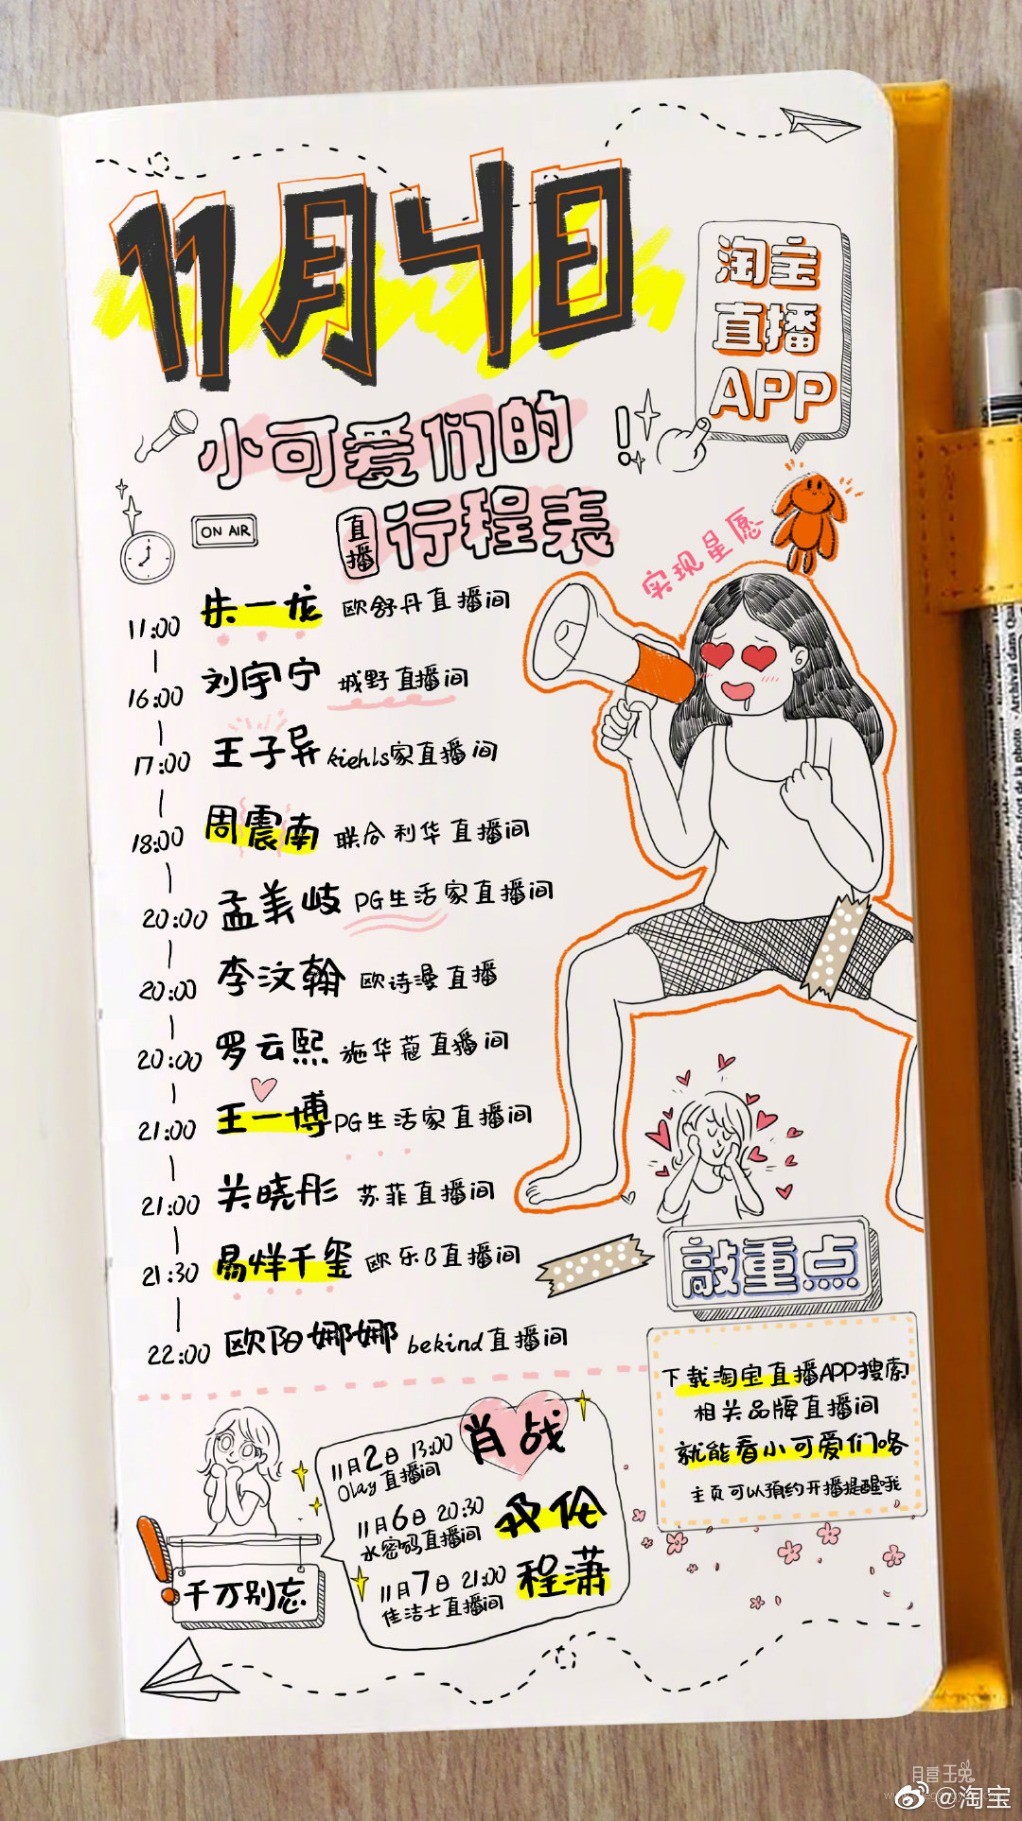 11月4日
淘宝
直播
APP
小可爱们的
直播行程表
ON AIR
实现星愿
11:00 朱一龙 欧舒丹直播间
16:00 刘宇宁 城野直播间
17:00 王子异 kiehls家直播间
18:00 周震南 联合利华直播间
20:00 孟美岐 PG生活家直播间
20:00 李汶翰 欧诗漫直播
20:00 罗云熙 施华蔻直播间
21:00 王一博 PG生活家直播间
21:00 关晓彤 苏菲直播间
21:30 易烊千玺 欧乐B直播间
22:00 欧阳娜娜 bekind直播间
敲重点
下载淘宝直播APP搜索
相关品牌直播间
就能看小可爱们咯
主页可以预约开播提醒哦
千万别忘
11月2日 13:00 肖战
Olay直播间
11月6日 20:30
水密码直播间
11月7日 21:00 程潇
佳洁士直播间
@淘宝